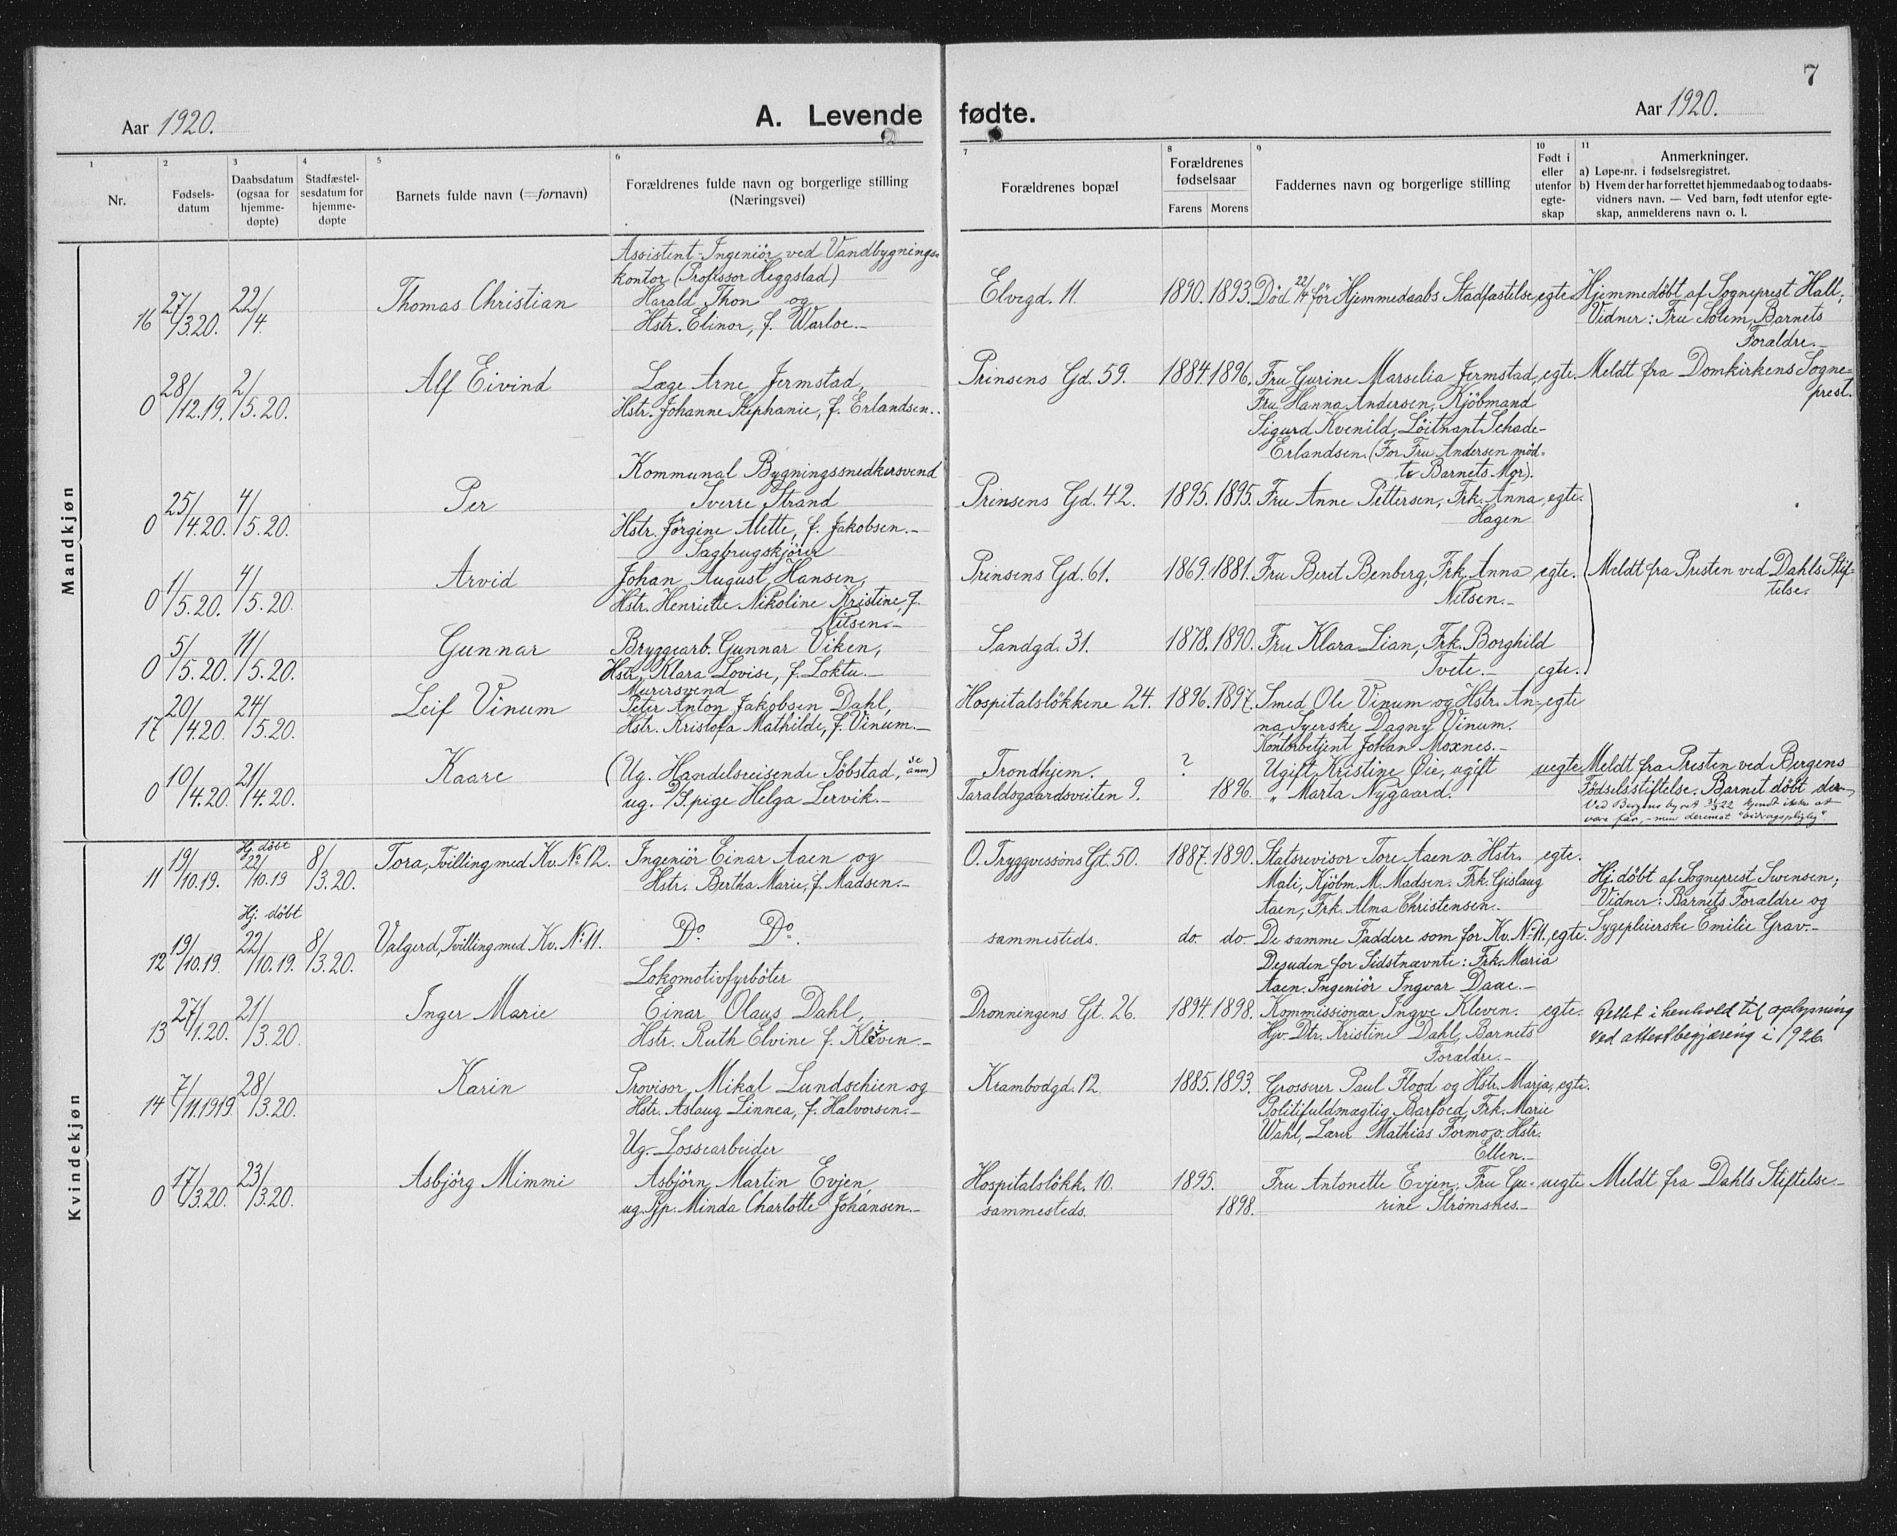 7
Aar 1920.
A. Levende fødte.
Aar 1920.
1
2
3
4
5
6
7
8
9
10
11
Nr.
Fødsels-
datum
Daabsdatum
(ogsaa for
hjemme-
døpte)
Stadfæstel-
sesdatum for
hjemme-
døpte
Barnets fulde navn (= fornavn)
Forældrenes fulde navn og borgerlige stilling
(Næringsvei)
Forældrenes bopæl
Forældrenes
fødselsaar
Farens Morens
Faddernes navn og borgerlig stilling
Født i
eller
utenfor
egte-
skap
Anmerkninger.
a) Løpe-nr. i fødselsregistret.
b) Hvem der har forrettet hjemmedaab og to daabs-
vidners navn. — Ved barn, født utenfor egte-
skap, anmelderens navn o. l.
Mandkjøn
16 27/3.20. 22/4.
Thomas Christian
Assistent-Ingeniör ved Vandbygnings-
kontor (Professor Heggstad)
Harald Thon og
Hstr. Elinor, f. Warloe.-
Elvegd. 11.
1890. 1893.
Död 22/4 för Hjemmedaabs Stadfæstelse
egte
Hjemmedöbt af Sogneprest Hall;
Vidner: Fru Solem, Barnets
Forældre.-
0 28/12.19. 2/5.20.
Alf Eivind
Læge Arne Jermstad,
Hstr. Johanne Stephanie, f. Erlandsen.
Prinsens Gd. 59.
1884. 1896.
Fru Gurine Marselia Jermstad,
Fru Hanna Andersen, Kjöbmand
Sigurd Kvenild, Löitnant Schade-
Erlandsen. (For Fru Andersen möd-
te Barnets Mor).
egte.
Meldt fra Domkirkens Sogne-
prest.
0 25/4.20. 4/5.20.
Per
Kommunal Bygningssnedkersvend
Sverre Strand
Hstr. Jörgine Mette, f. Jakobsen.-
Prinsens Gd. 42.
1895. 1895.
Fru Anne Pettersen, Frk. Anna
Hagen
egte.
0 1/5.20. 4/5.20.
Arvid
Sagbrugskjörer
Johan August Hansen,
Hstr. Henriette Nikoline Kristine f.
Nilsen.-
Prinsens Gd. 61.
1869. 1881.
Fru Beret Benberg, Frk. Anna
Nilsen.-
egte.
Meldt fra Presten ved Dahls Stif-
telse.
0 5/5.20. 11/5.20.
Gunnar
Bryggearb. Gunnar Viken,
Hstr. Klara Lovise, f. Loktu.-
Sandgd. 31.
1878. 1890.
Fru Klara Lian, Frk. Borghild
Tvete.-
egte.
17 20/4.20. 24/5.20.
Leif Vinum
Murersvend
Peter Anton Jakobsen Dahl,
Hstr. Kristofa Mathilde, f. Vinum.-
Hospitalslökkene 24.
1896. 1897.
Smed Ole Vinum og Hstr. An-
na, Syerske Dagny Vinum.
Kontorbetjent Johan Moxnes.-
egte
0 10/4.20. 21/4.20.
Kaare
(Ug. Handelsreisende Söbstad, se anm)
ug. Pige Helga Lervik.-
Trondhjem.
Taraldsgaardsveiten 9.
? 1896.
Ugift Kristine Öie, ugift
„ Marta Nygaard.
uegte
Meldt fra Presten ved Bergens
Födselsstiftelse. Barnet döbt der.
Kvindekjøn
11 19/10.19. Hj. döbt 22/10.19 8/3.20.
Tora, Tvilling med Kv. No 12.
Ingeniör Einar Aaen og
Hstr. Bertha Marie, f. Madsen.-
O. Tryggvessöns Gt. 50.
1887. 1890.
Statsrevisor Tore Aaen o. Hstr.
Mali, Kjöbm. M. Madsen. Frk. Gislaug
Aaen, Frk. Alma Christensen.
egte.
Hj. döbt af Sogneprest Swensen;
Vidner: Barnets Forældre og
Sygepleierske Emilie Grav.-
12 19/10.19. Hj. döbt 22/10.19. 8/3.20.
Valgerd, Tvilling med Kv. No 11.
Do Do.
sammesteds.
do. do
De samme Faddere som for Kv. No 11.
Desuden for Sidstnævnte: Frk. Maria
Aaen. Ingeniör Ingvar Daae.-
egte.
13 27/1.20. 21/3.20.
Inger Marie
Lokomotivfyrböter
Einar Olaus Dahl,
Hstr. Ruth Elvine f. Kleven-
Dronningens Gt. 26.
1894. 1898.
Kommissionær Ingve Kleven.
Hjv. Dtr. Kristine Dahl, Barnets
Forældre.-
egte.
Rettet i henhold til oplysning
ved attestbegjæring i 1926.
14 7/11.1919. 28/3.20.
Karin
Provisor Mikal Lundschien og
Hstr. Aslaug Linnea, f. Halvorsen.-
Krambodgd. 12.
1885. 1893.
Grosserer Paul Flood og Hstr. Marja,
Politifuldmægtig Barfoed, Frk. Marie
Wahl, Lærer Mathias Formo o. Hstr.
Ellen.-
egte.
0 17/3.20. 23/3.20.
Asbjörg Mimmi
Ug. Lossearbeider
Asbjörn Martin Evjen,
ug. Pp. Minda Charlotte Johansen.-
Hospitalslökk. 10.
sammesteds.
1895.
1898.
Fru Antonette Evjen, Fru Gu-
rine Strömsnes.-
uegte
Meldt fra Dahls Stiftelse-